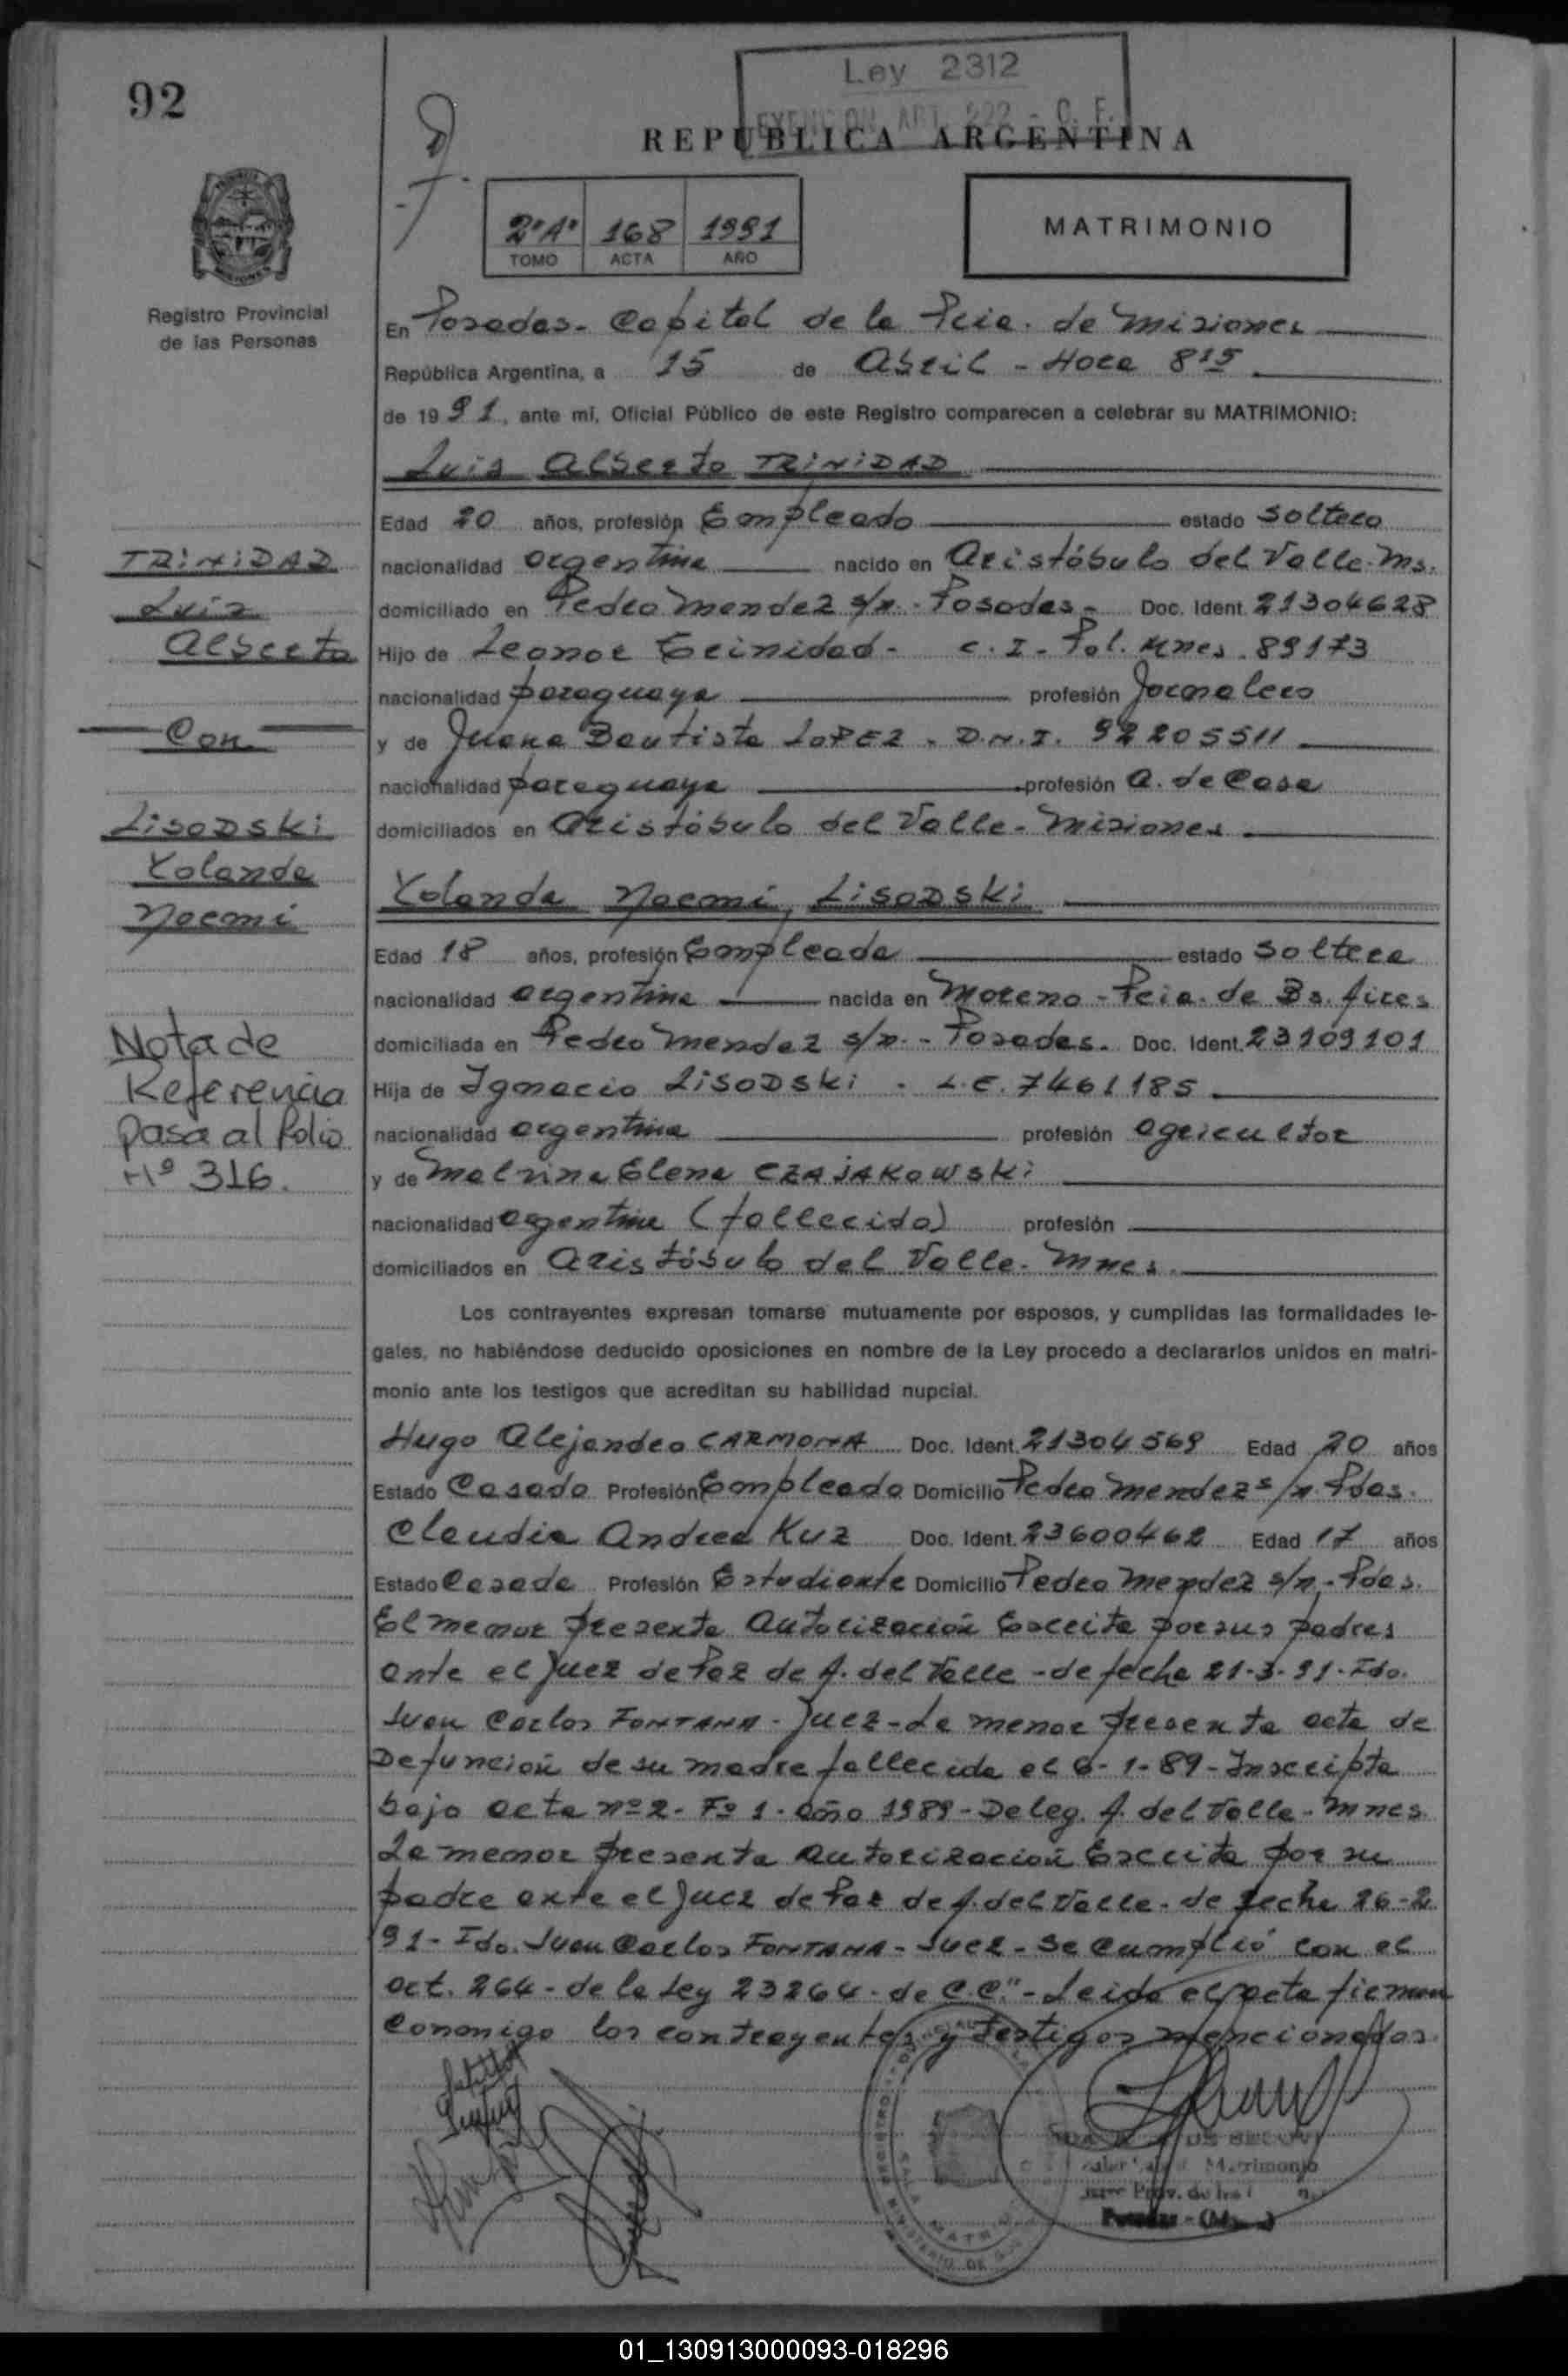 92
Ley 2312
EXENCION ART. 222 - C. F.
REPUBLICA ARGENTINA
2º"A" 168 1991
TOMO ACTA AÑO
MATRIMONIO
Registro Provincial
de las Personas
En Posadas - Capital de la Pcia. de Misiones
República Argentina, a 15 de Abril - Hora 8 15
de 1991, ante mí, Oficial Público de este Registro comparecen a celebrar su MATRIMONIO:
Luis Alberto TRINIDAD
Edad 20 años, profesión Empleado estado Soltero
nacionalidad argentina nacido en Aristóbulo del Valle - Ms.
domiciliado en Pedro Mendez s/n - Posadas - Doc. Ident. 21304628
Hijo de Leonor Trinidad - C. I - Pol. Mnes. 89173
nacionalidad paraguaya profesión Jornalero
y de Juana Bautista LOPEZ - D.N.I. 92205511
nacionalidad paraguaya profesión A. de Casa
domiciliados en Aristóbulo del Valle - Misiones
TRINIDAD
Luis
Alberto
Con
LISODSKI
Yolanda
Noemi
Nota de
Referencia
pasa al folio
Nº 316.
Yolanda Noemi, LISODSKI
Edad 18 años, profesión Empleada estado Soltera
nacionalidad argentina nacida en Moreno - Pcia. de Bs. Aires
domiciliada en Pedro Mendez s/n. - Posadas - Doc. Ident. 23109101
Hija de Ignacio LISODSKI - L.E. 7461185
nacionalidad argentina profesión agricultor
y de Malvina Elena CZAJAKOWSKI
nacionalidad argentina (fallecida) profesión
domiciliados en Aristóbulo del Valle - Mnes.
Los contrayentes expresan tomarse mutuamente por esposos, y cumplidas las formalidades le-
gales, no habiéndose deducido oposiciones en nombre de la Ley procedo a declararlos unidos en matri-
monio ante los testigos que acreditan su habilidad nupcial.
Hugo Alejandro CARMONA Doc. Ident. 21304569 Edad 20 años
Estado Casado Profesión Empleado Domicilio Pedro Mendez s/n. Pdas.
Claudia Andrea Kuz Doc. Ident. 23600462 Edad 17 años
Estado Casada Profesión Estudiante Domicilio Pedro Mendez s/n - Pdas.
El menor presenta Autorización Escrita por sus padres
ante el Juez de Paz de A. del Valle - de fecha 21-3-91 - Fdo.
Juan Carlos FONTANA - Juez - La menor presenta acta de
Defunción de su madre fallecida el 6-1-89 - Inscripta
bajo acta nº 2 - Fº 1 - año 1989 - Deleg. A. del Valle - Mnes.
La menor presenta Autorización Escrita por su
padre ante el Juez de Paz de A. del Valle - de fecha 26-2
91 - Fdo. Juan Carlos FONTANA - Juez - Se Cumplió con el
Art. 264 - de la Ley 23264 - de C.C." - Leida el acta firman
Conmigo los contrayentes y testigos mencionados.
Matrimonio
Posadas - (Mnes.)
01_130913000093-018296